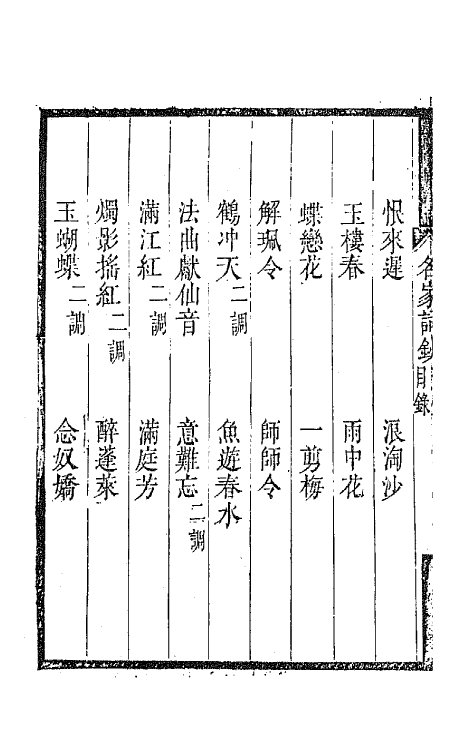 名家詞鈔目錄
恨來遲 浪淘沙
玉樓春 雨中花
蝶戀花 一剪梅
解珮令 師師令
鶴冲天二調 魚遊春水
法曲獻仙音 意難忘二調
滿江紅二調 滿庭芳
燭影搖紅二調 醉蓬萊
玉蝴蝶二調 念奴嬌